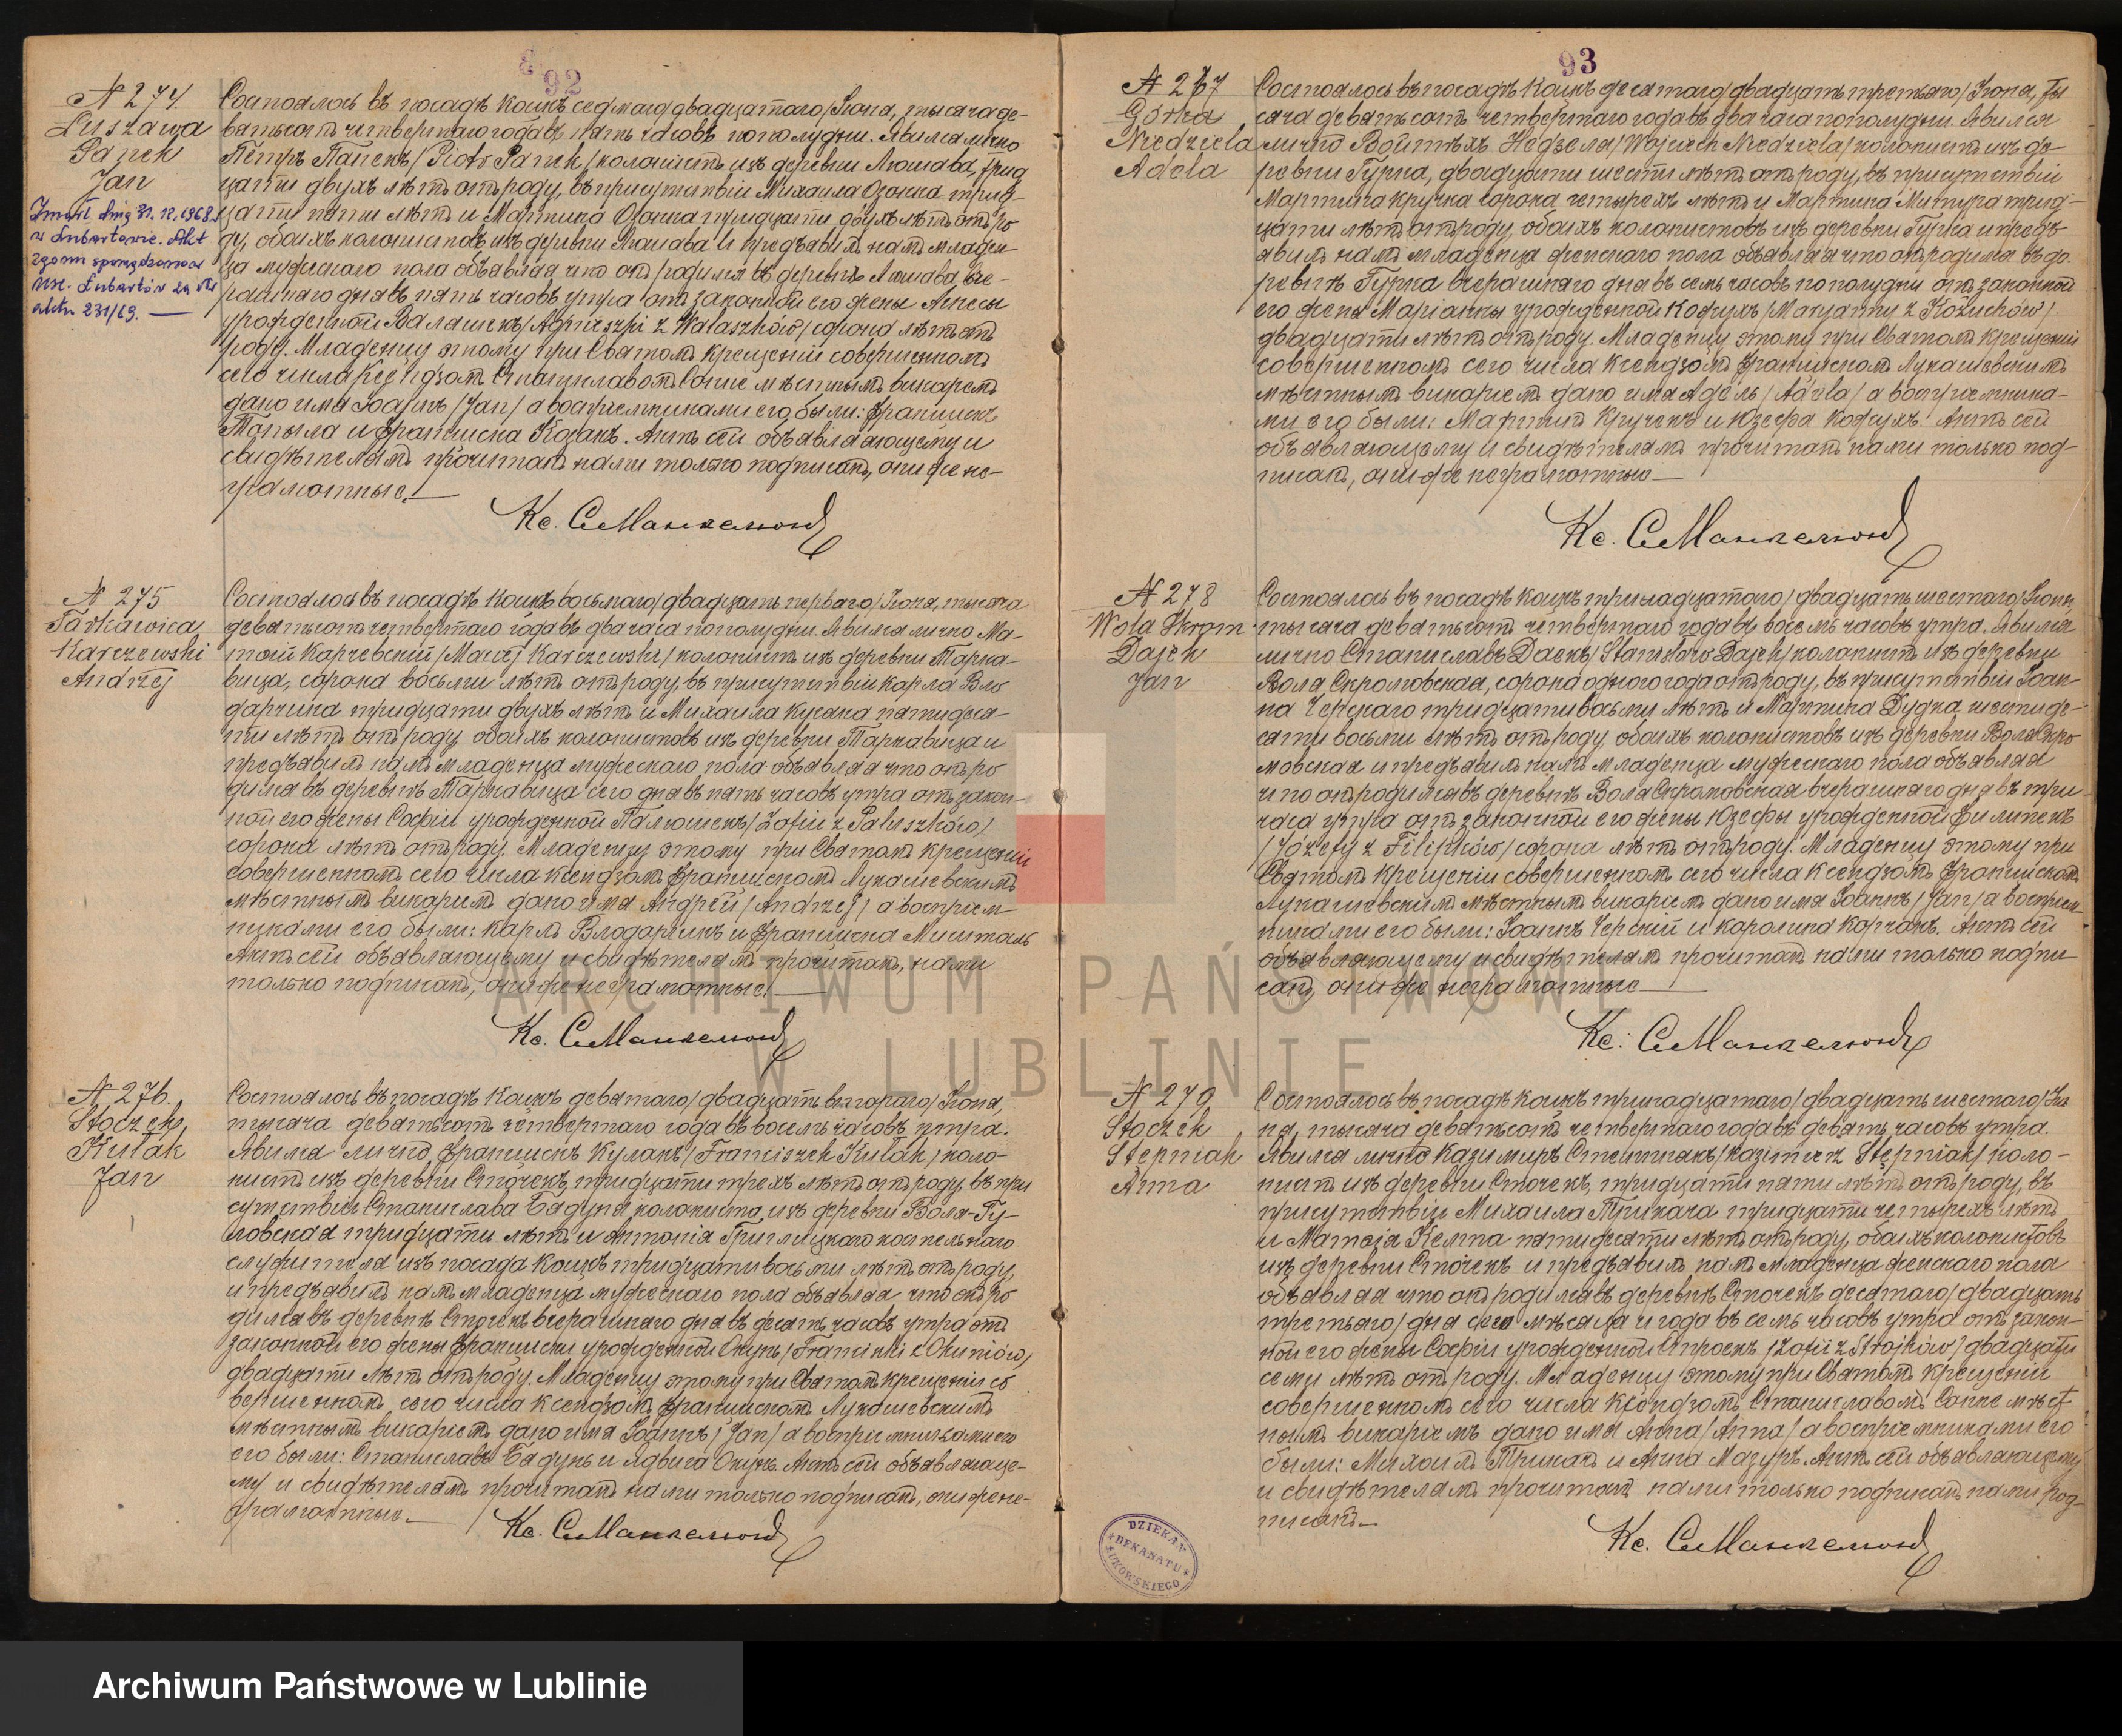 92
№ 274
Luszawa
Panek
Jan
Zmarł dnia 31.12.1968
w Lubartowie. Akt
zgonu sporządzono w
USC. Lubartów za Nr
aktu 231/69. —
Состоялось въ посадѣ Коцкъ седмаго /двадцатаго/ Іюня, тысяча де-
вятьсотъ четвертаго года въ пять часовъ пополудни. Явился лично
Петръ Панекъ /Piotr Panek/ колонистъ изъ деревни Люшава, трид
цати двухъ лѣтъ отъ роду, въ присутствіи Михаила Озонка трид-
цати пяти лѣтъ и Мартина Озонка тридцати двухъ лѣтъ отъ ро
ду, обоихъ колонистовъ изъ деревни Люшава и предъявилъ намъ младен-
ца мужескаго пола объявляя что онъ родился въ деревнѣ Люшава вче-
рашняго дня въ пять часовъ утра отъ законной его жены Агнесы
урожденной Валашекъ /Agnieszki z Walaszków/ сорока лѣтъ отъ
роду. Младенцу этому при Святомъ Крещеніи совершенномъ
сего числа Ксендзомъ Станиславомъ Сапне мѣстнымъ викаріемъ
дано имя Іоаннъ /Jan/ а воспріемниками его были: Францишекъ
Топыла и Франциска Козакъ. Актъ сей объявляющему и
свидѣтелямъ прочитанъ нами только подписанъ, они же не-
грамотные. —
Кс. С Манкелюнъ
№ 275
Tarkawica
Karczewski
Andrzej
Состоялось въ посадѣ Коцкъ восьмаго /двадцать перваго/ Іюня, тысяча
девятьсотъ четвертаго года въ два часа пополудни. Явился лично Ма-
тѳей Карчевскій /Maciej Karczewski/ колонистъ изъ деревни Тарка-
вица, сорока восьми лѣтъ отъ роду, въ присутствіи Карла Вло
дарчика тридцати двухъ лѣтъ и Михаила Кусяка пятидеся-
ти лѣтъ отъ роду обоихъ колонистовъ изъ деревни Таркавица и
предъявилъ намъ младенца мужескаго пола объявляя что онъ ро
дился въ деревнѣ Таркавица сего дня въ пять часовъ утра отъ закон-
ной его жены Софіи урожденной Палюшекъ /Zofii z Paluszków/
сорока лѣтъ отъ роду. Младенцу этому при Святомъ Крещеніи
совершенномъ сего числа Ксендзомъ Францискомъ Лукашевскимъ
мѣстнымъ викаріемъ дано имя Андрей /Andrzej/ а воспріем-
никами его были: Карлъ Влодарчикъ и Франциска Мишталь
Актъ сей объявляющему и свидѣтелямъ прочитанъ, нами
только подписанъ, они же неграмотные. —
Кс. С Манкелюнъ
№ 276.
Stoczek
Kułak
Jan
Состоялось въ посадѣ Коцкъ девятаго /двадцать втораго/ Іюня,
тысяча девятьсотъ четвертаго года въ восемь часовъ утра.
Явился лично Францишекъ Кулакъ /Franciszek Kułak/ коло-
нистъ изъ деревни Сточекъ, тридцати трехъ лѣтъ отъ роду, въ при
сутствіи Станислава Бадуня колониста изъ деревни Воля-Гу-
ловская тридцати лѣтъ и Антонія Григлицкаго костельнаго
служителя изъ посада Коцкъ тридцати восьми лѣтъ отъ роду,
и предъявилъ намъ младенца мужескаго пола объявляя что онъ ро
дился въ деревнѣ Сточекъ вчерашняго дня въ десять часовъ утра отъ
законной его жены Франциски урожденной Окунь /Franciszki z Okuniów/
двадцати лѣтъ отъ роду. Младенцу этому при Святомъ Крещеніи со
вершенномъ сего числа Ксендзомъ Францискомъ Лукашевскимъ
мѣстнымъ викаріемъ дано имя Іоаннъ /Jan/ а воспріемниками его
его были: Станиславъ Бадунь и Ядвига Окунь. Актъ сей объявляюще-
му и свидѣтелямъ прочитанъ нами только подписанъ, они же не-
грамотные. —
Кс. С Манкелюнъ
93
№ 277
Górka
Niedziela
Adela
Состоялось въ посадѣ Коцкъ десятаго /двадцать третьяго/ Іюня, ты
сяча девятьсотъ четвертаго года въ два часа пополудни. Явился
лично Войтѣхъ Недзеля /Wojciech Niedziela/ колонистъ изъ де-
ревни Гурка, двадцати шести лѣтъ отъ роду, въ присутствіи
Мартина Кручка сорока четырехъ лѣтъ и Мартина Митура трид-
цати лѣтъ отъ роду обоихъ колонистовъ изъ деревни Гурка и предъ-
явилъ намъ младенца женскаго пола объявляя что онъ родился въ де-
ревнѣ Гурка вчерашняго дня въ семь часовъ пополудни отъ законной
его жены Маріанны урожденной Кожухъ /Maryanny z Kożuchów/
двадцати лѣтъ отъ роду. Младенцу этому при Святомъ Крещеніи
совершенномъ сего числа Ксендзомъ Францискомъ Лукашевскимъ
мѣстнымъ викаріемъ дано имя Адель /Adela/ а воспріемника-
ми его были: Мартинъ Кручекъ и Юзефа Кожухъ. Актъ сей
объявляющему и свидѣтелямъ прочитанъ нами только под-
писанъ, они же неграмотные —
Кс. С Манкелюнъ
№ 278
Wola Skrom.
Dajek
Jan
Состоялось въ посадѣ Коцкъ тринадцатаго /двадцать шестаго/ Іюня,
тысяча девятьсотъ четвертаго года въ восемь часовъ утра. Явился
лично Станиславъ Даекъ /Stanisław Dajek/ колонистъ изъ деревни
Воля Скромовская, сорока одного года отъ роду, въ присутствіи Іоан-
на Черскаго тридцати восьми лѣтъ и Мартина Дудка шестиде-
сяти восьми лѣтъ отъ роду обоихъ колонистовъ изъ деревни Воля Скро
мовская и предъявилъ намъ младенца мужескаго пола объявляя
что онъ родился въ деревнѣ Воля Скромовская вчерашняго дня въ три
часа утра отъ законной его жены Юзефы урожденной Филипекъ
/Józefy z Filipków/ сорока лѣтъ отъ роду. Младенцу этому при
Святомъ Крещеніи совершенномъ сего числа Ксендзомъ Францискомъ
Лукашевскимъ мѣстнымъ викаріемъ дано имя Іоаннъ /Jan/ а воспріем-
никами его были: Іоаннъ Черскій и Каролина Корчакъ. Актъ сей
объявляющему и свидѣтелямъ прочитанъ нами только подпи
санъ, они же неграмотные —
Кс. С Манкелюнъ
№ 279
Stoczek
Stępniak
Anna
Состоялось въ посадѣ Коцкъ тринадцатаго /двадцать шестаго/ Ію
ня, тысяча девятьсотъ четвертаго года въ девять часовъ утра.
Явился лично Казимиръ Стемпнякъ /Kazimierz Stępniak/ коло-
нистъ изъ деревни Сточекъ, тридцати пяти лѣтъ отъ роду, въ
присутствіи Михаила Трикача тридцати четырехъ лѣтъ
и Матвія Келта пятидесяти лѣтъ отъ роду, обоихъ колонистовъ
изъ деревни Сточекъ и предъявилъ намъ младенца женскаго пола
объявляя что онъ родился въ деревнѣ Сточекъ десятаго /двадцать
третьяго/ дня сего мѣсяца и года въ семь часовъ утра отъ закон-
ной его жены Софіи урожденной Строекъ /Zofii z Strojków/ двадцати
семи лѣтъ отъ роду. Младенцу этому при Святомъ Крещеніи
совершенномъ сего числа Ксендзомъ Станиславомъ Сапне мѣст-
нымъ викаріемъ дано имя Анна /Anna/ а воспріемниками его
были: Михаилъ Трикачъ и Анна Мазуръ. Актъ сей объявляющему
и свидѣтелямъ прочитанъ нами только подписанъ нами под-
писанъ. —
Кс. С Манкелюнъ
DZIEKAN
DEKANATU
ŁUKOWSKIEGO
ARCHIWUM PAŃSTWOWE
W LUBLINIE
Archiwum Państwowe w Lublinie